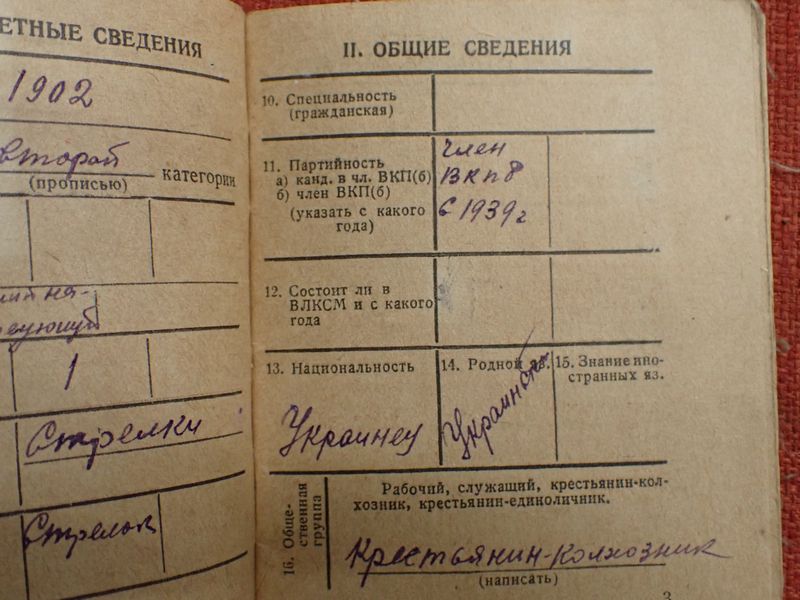 ЕТНЫЕ СВЕДЕНИЯ
1902
второй
(прописью) категории
1
Стрелки
Стрелок
II. ОБЩИЕ СВЕДЕНИЯ
10. Специальность
(гражданская)
11. Партийность
а) канд. в чл. ВКП(б)
б) член ВКП(б)
(указать с какого
года)
член
ВКпб
с 1939 г
12. Состоит ли в
ВЛКСМ и с какого
года
13. Национальность
Украинец
14. Родной яз.
15. Знание ино-
странных яз.
16. Обще-
ственная
группа
Рабочий, служащий, крестьянин-кол-
хозник, крестьянин-единоличник.
Крестьянин-колхозник
(написать)
3